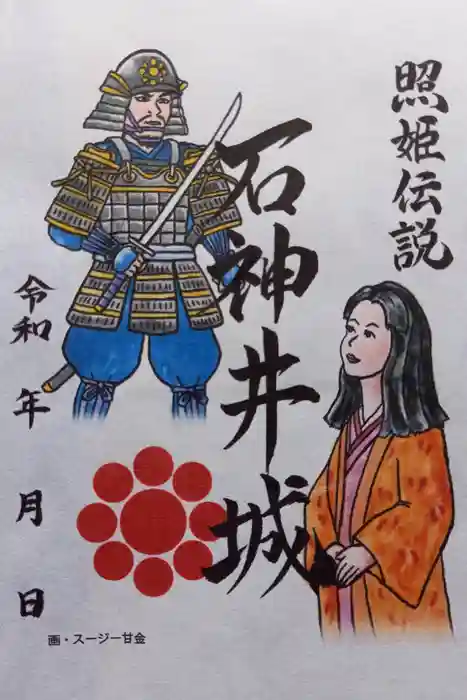 照姫伝説
石神井城
令和 年 月 日
画・スージー甘金